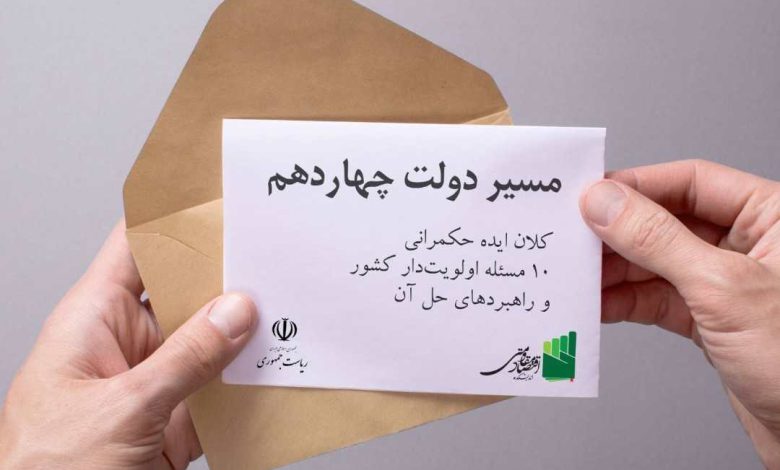 مسیر دولت چهاردهم
کلان ایده حکمرانی
۱۰ مسئله اولویت‌دار کشور
و راهبردهای حل آن
ریاست جمهوری
اندیشکده
اقتصاد مقاومتی